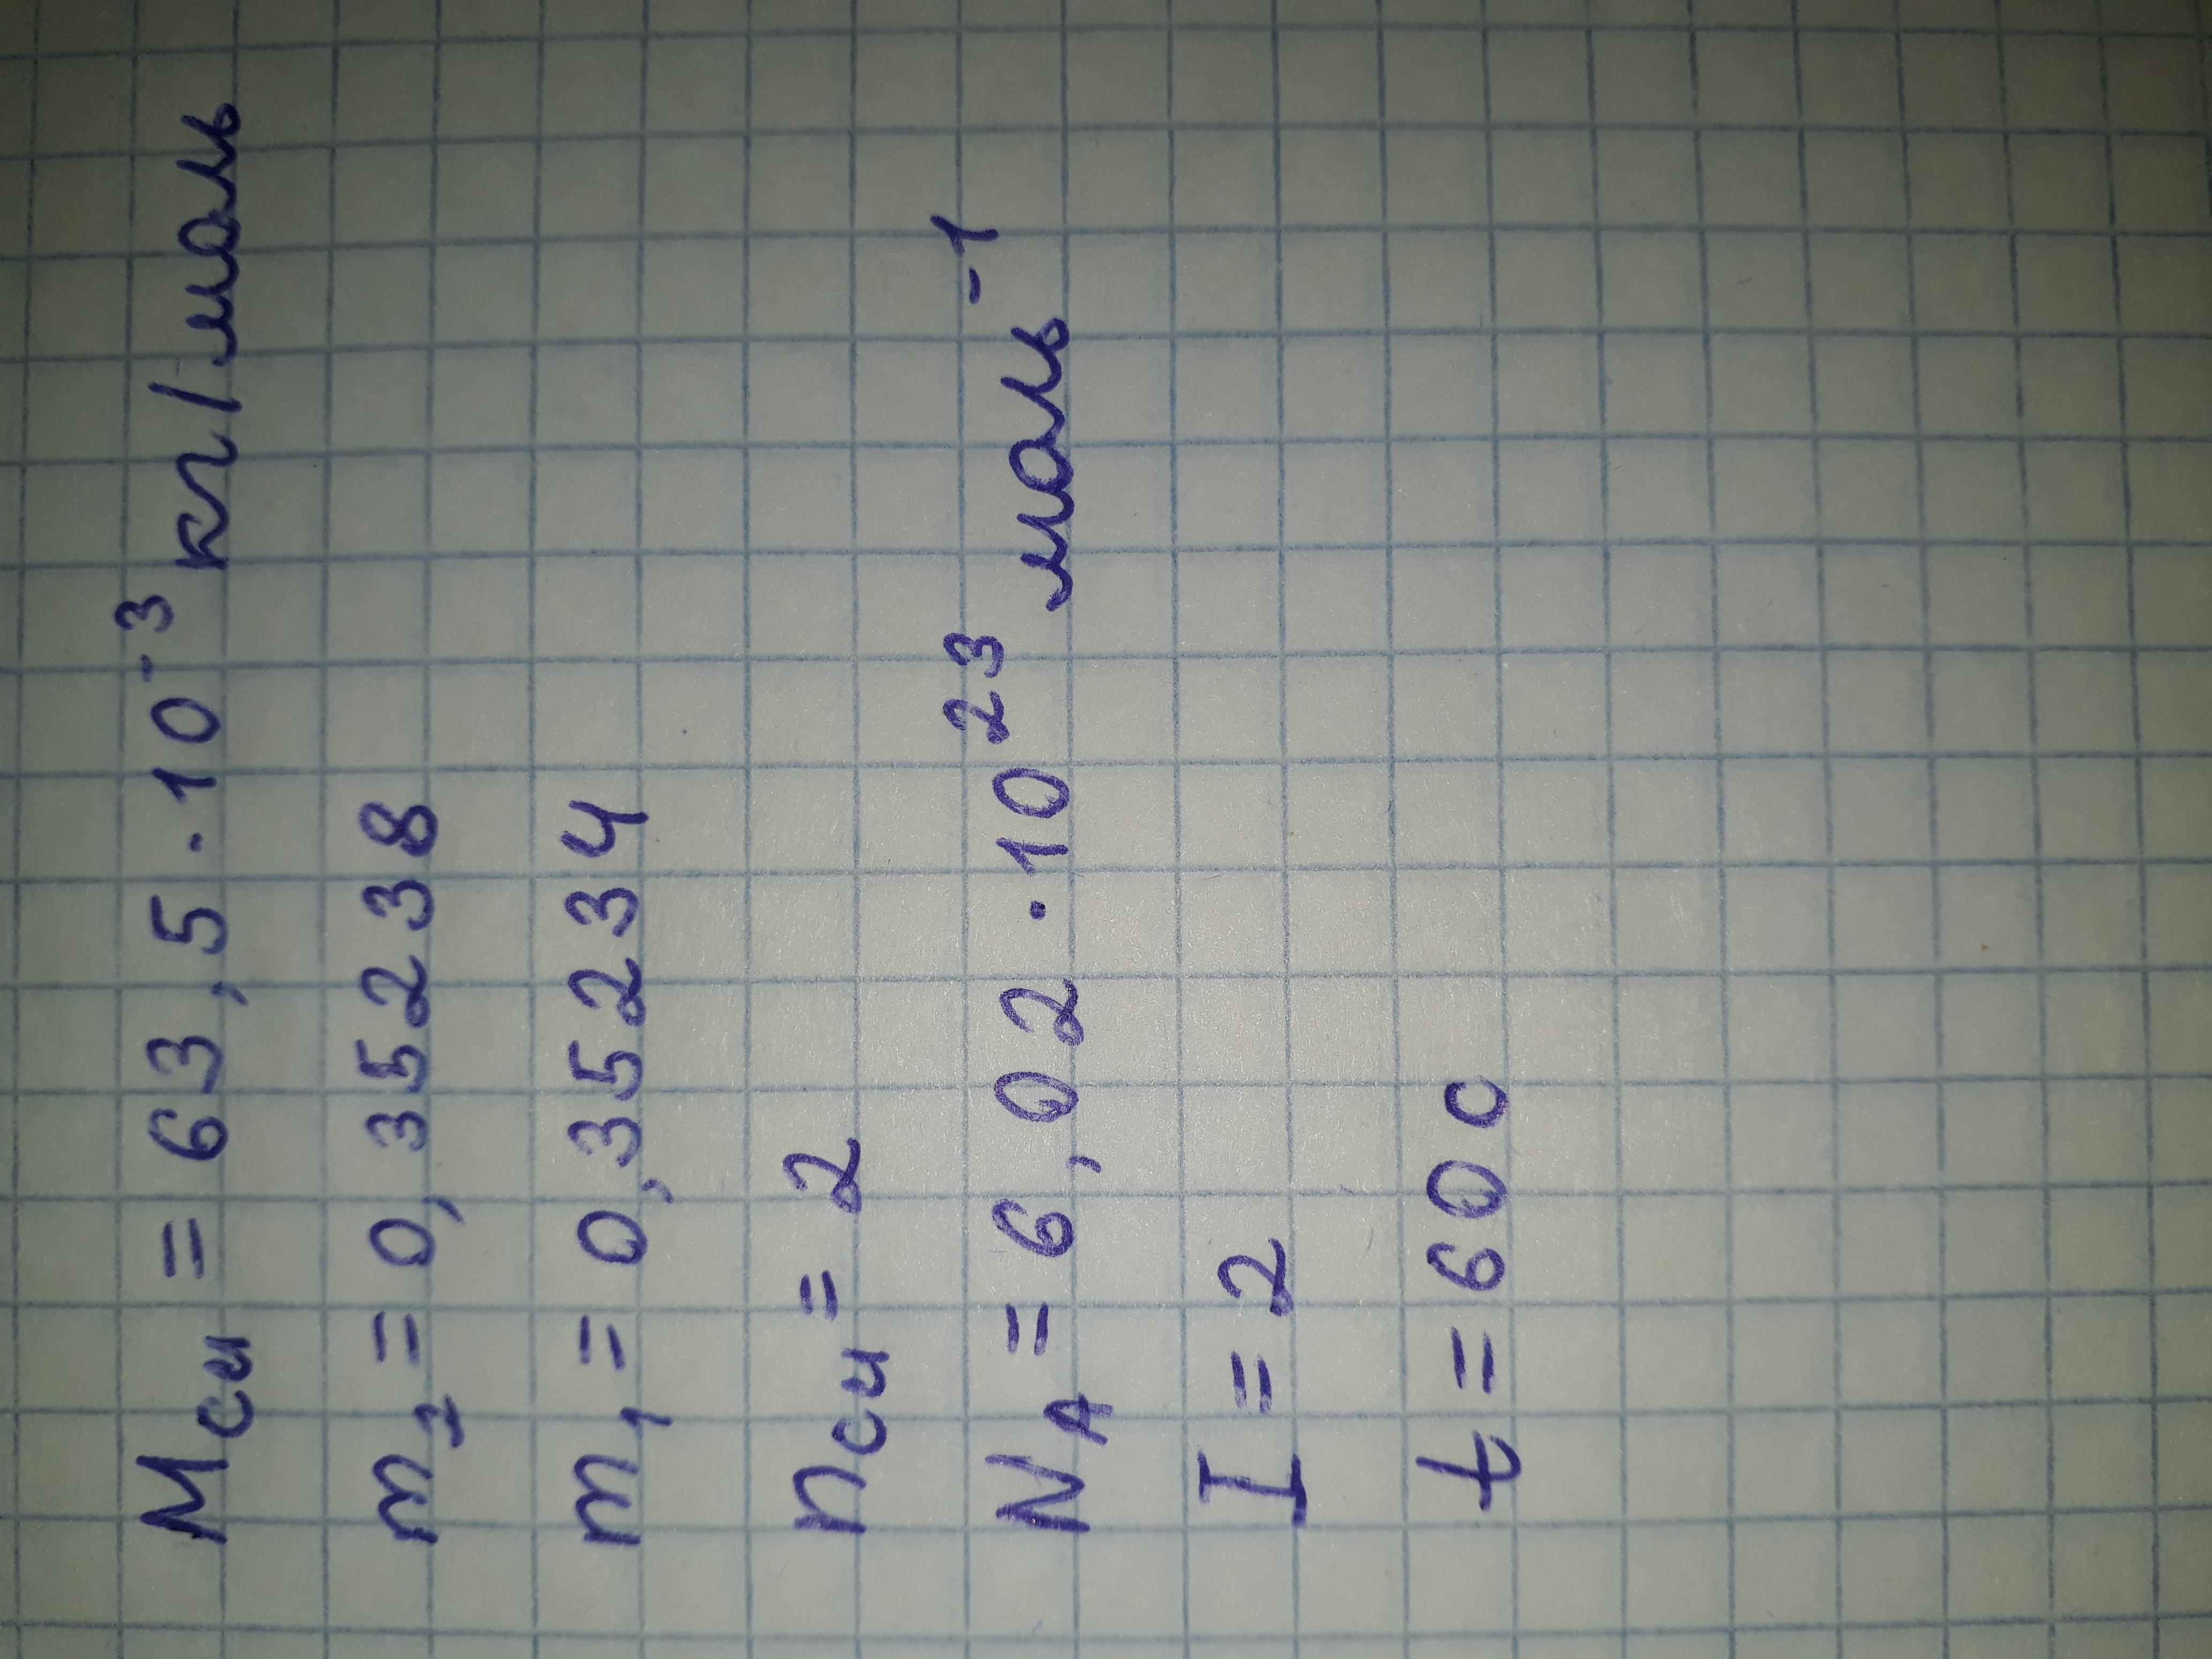 Mcu = 63,5 · 10⁻³ кг/моль
m₂ = 0,35238
m₁ = 0,35234
ncu = 2
N_A = 6,02 · 10²³ моль⁻¹
I = 2
t = 60 с